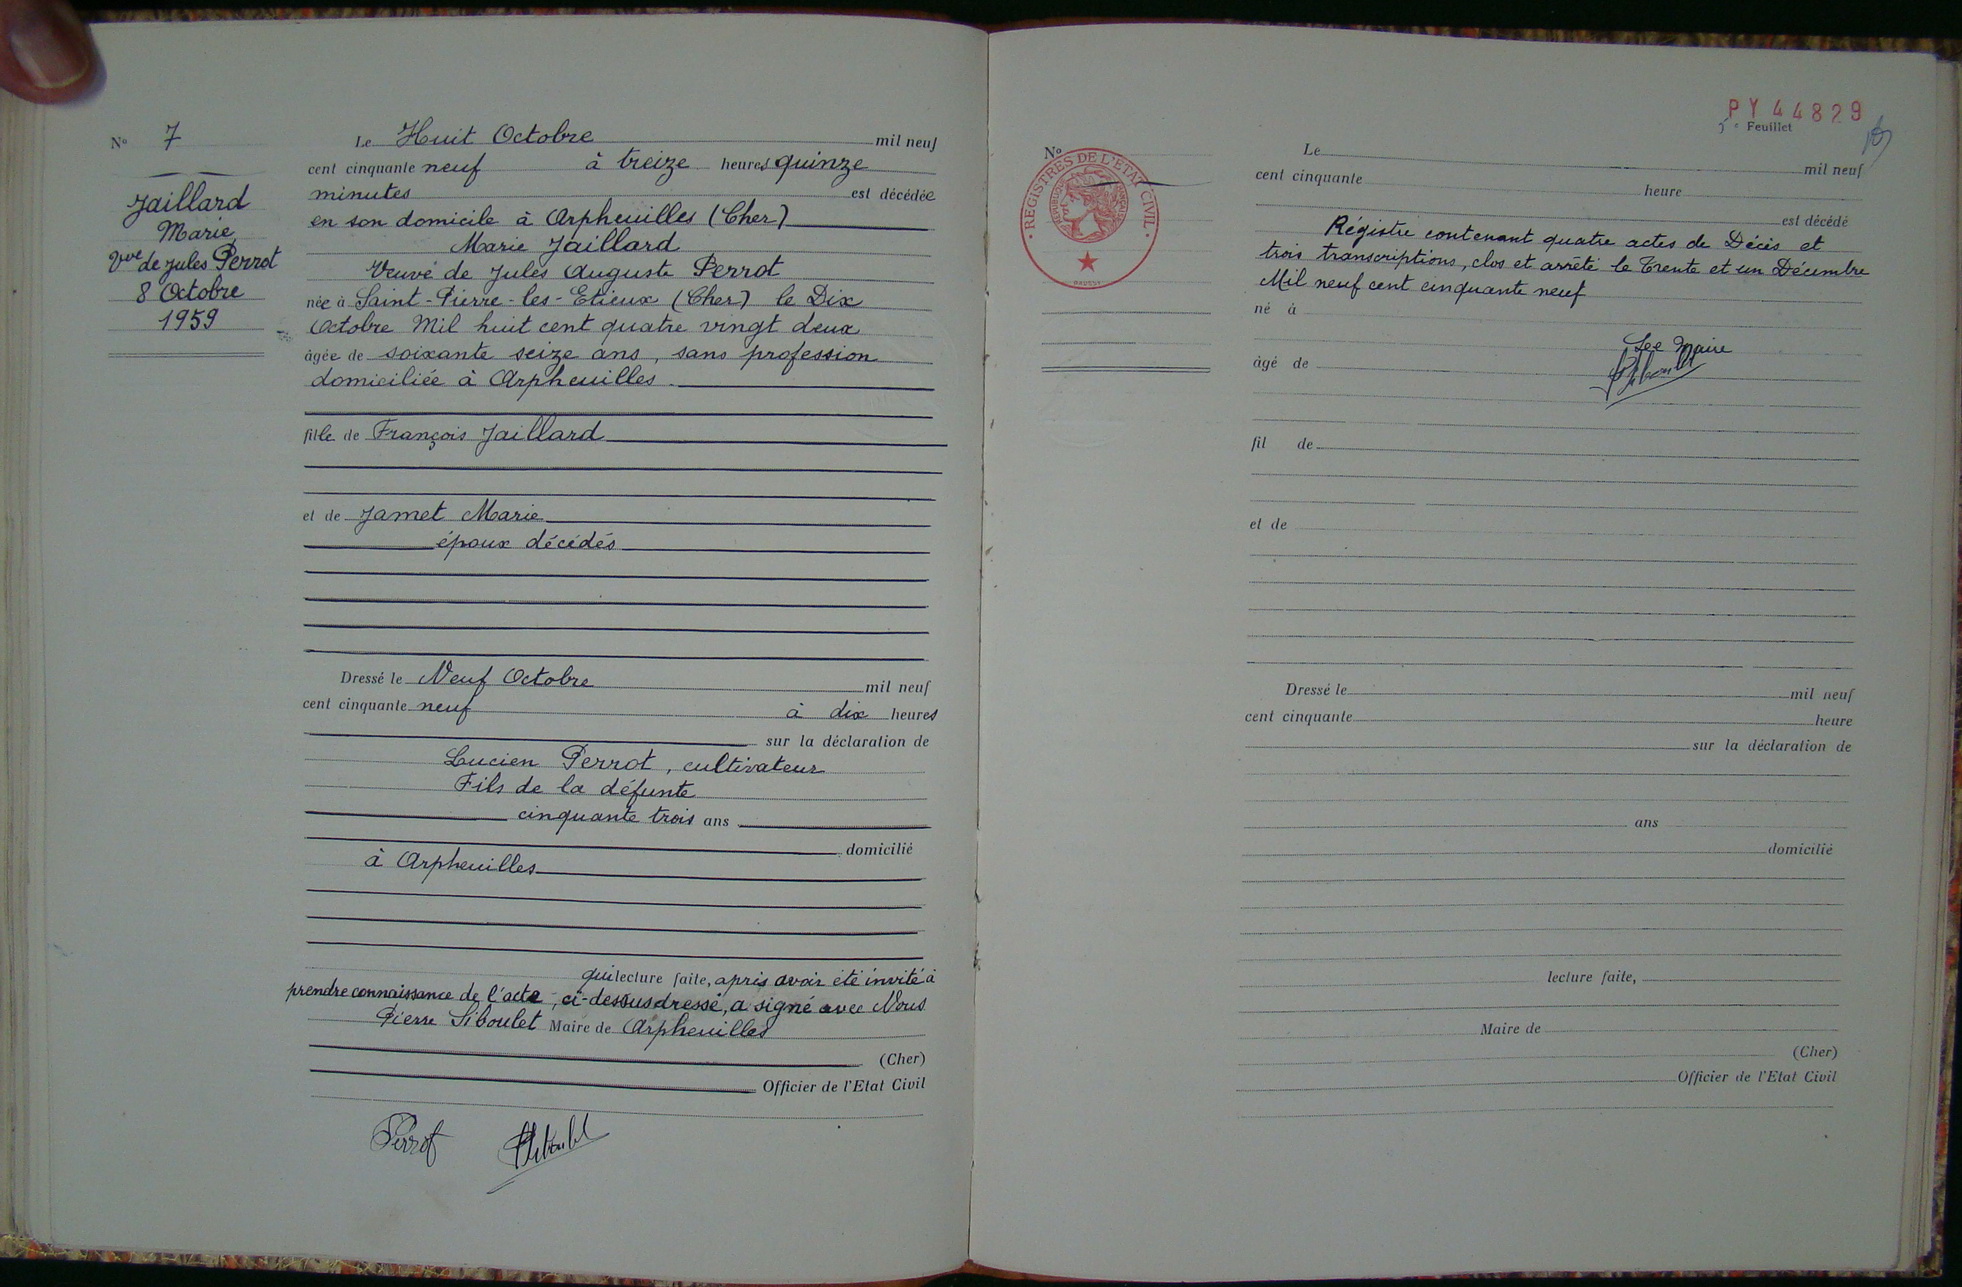 N° 7
Jaillard
Marie
Vve de Jules Perrot
8 Octobre
1959
Le Huit Octobre mil neuf
cent cinquante neuf à treize heures quinze
minutes est décédée
en son domicile à Orpheuilles (Cher)
Marie Jaillard
Veuve de Jules Auguste Perrot
née à Saint-Pierre-les-Etieux (Cher) le Dix
Octobre Mil huit cent quatre vingt deux
âgée de soixante seize ans, sans profession
domiciliée à Orpheuilles.
fille de François Jaillard
et de Jamet Marie
époux décédés
Dressé le Neuf Octobre mil neuf
cent cinquante neuf à dix heures
sur la déclaration de
Lucien Perrot, cultivateur
Fils de la défunte
cinquante trois ans
domicilié
à Orpheuilles
qui lecture faite, après avoir été invité à
prendre connaissance de l'acte, ci-dessus dressé, a signé avec Nous
Pierre Siboulet Maire de Orpheuilles
(Cher)
Officier de l'Etat Civil
Perrot
PY 44829
5e Feuillet
N°
REGISTRES DE L'ETAT CIVIL
REPUBLIQUE FRANÇAISE
Le mil neuf
cent cinquante heure
est décédé
Régistre contenant quatre actes de Décès et
trois transcriptions, clos et arrêté le Trente et un Décembre
Mil neuf cent cinquante neuf
né à
Le Maire
âgé de
fil de
et de
Dressé le mil neuf
cent cinquante heure
sur la déclaration de
ans
domicilié
lecture faite,
Maire de
(Cher)
Officier de l'Etat Civil